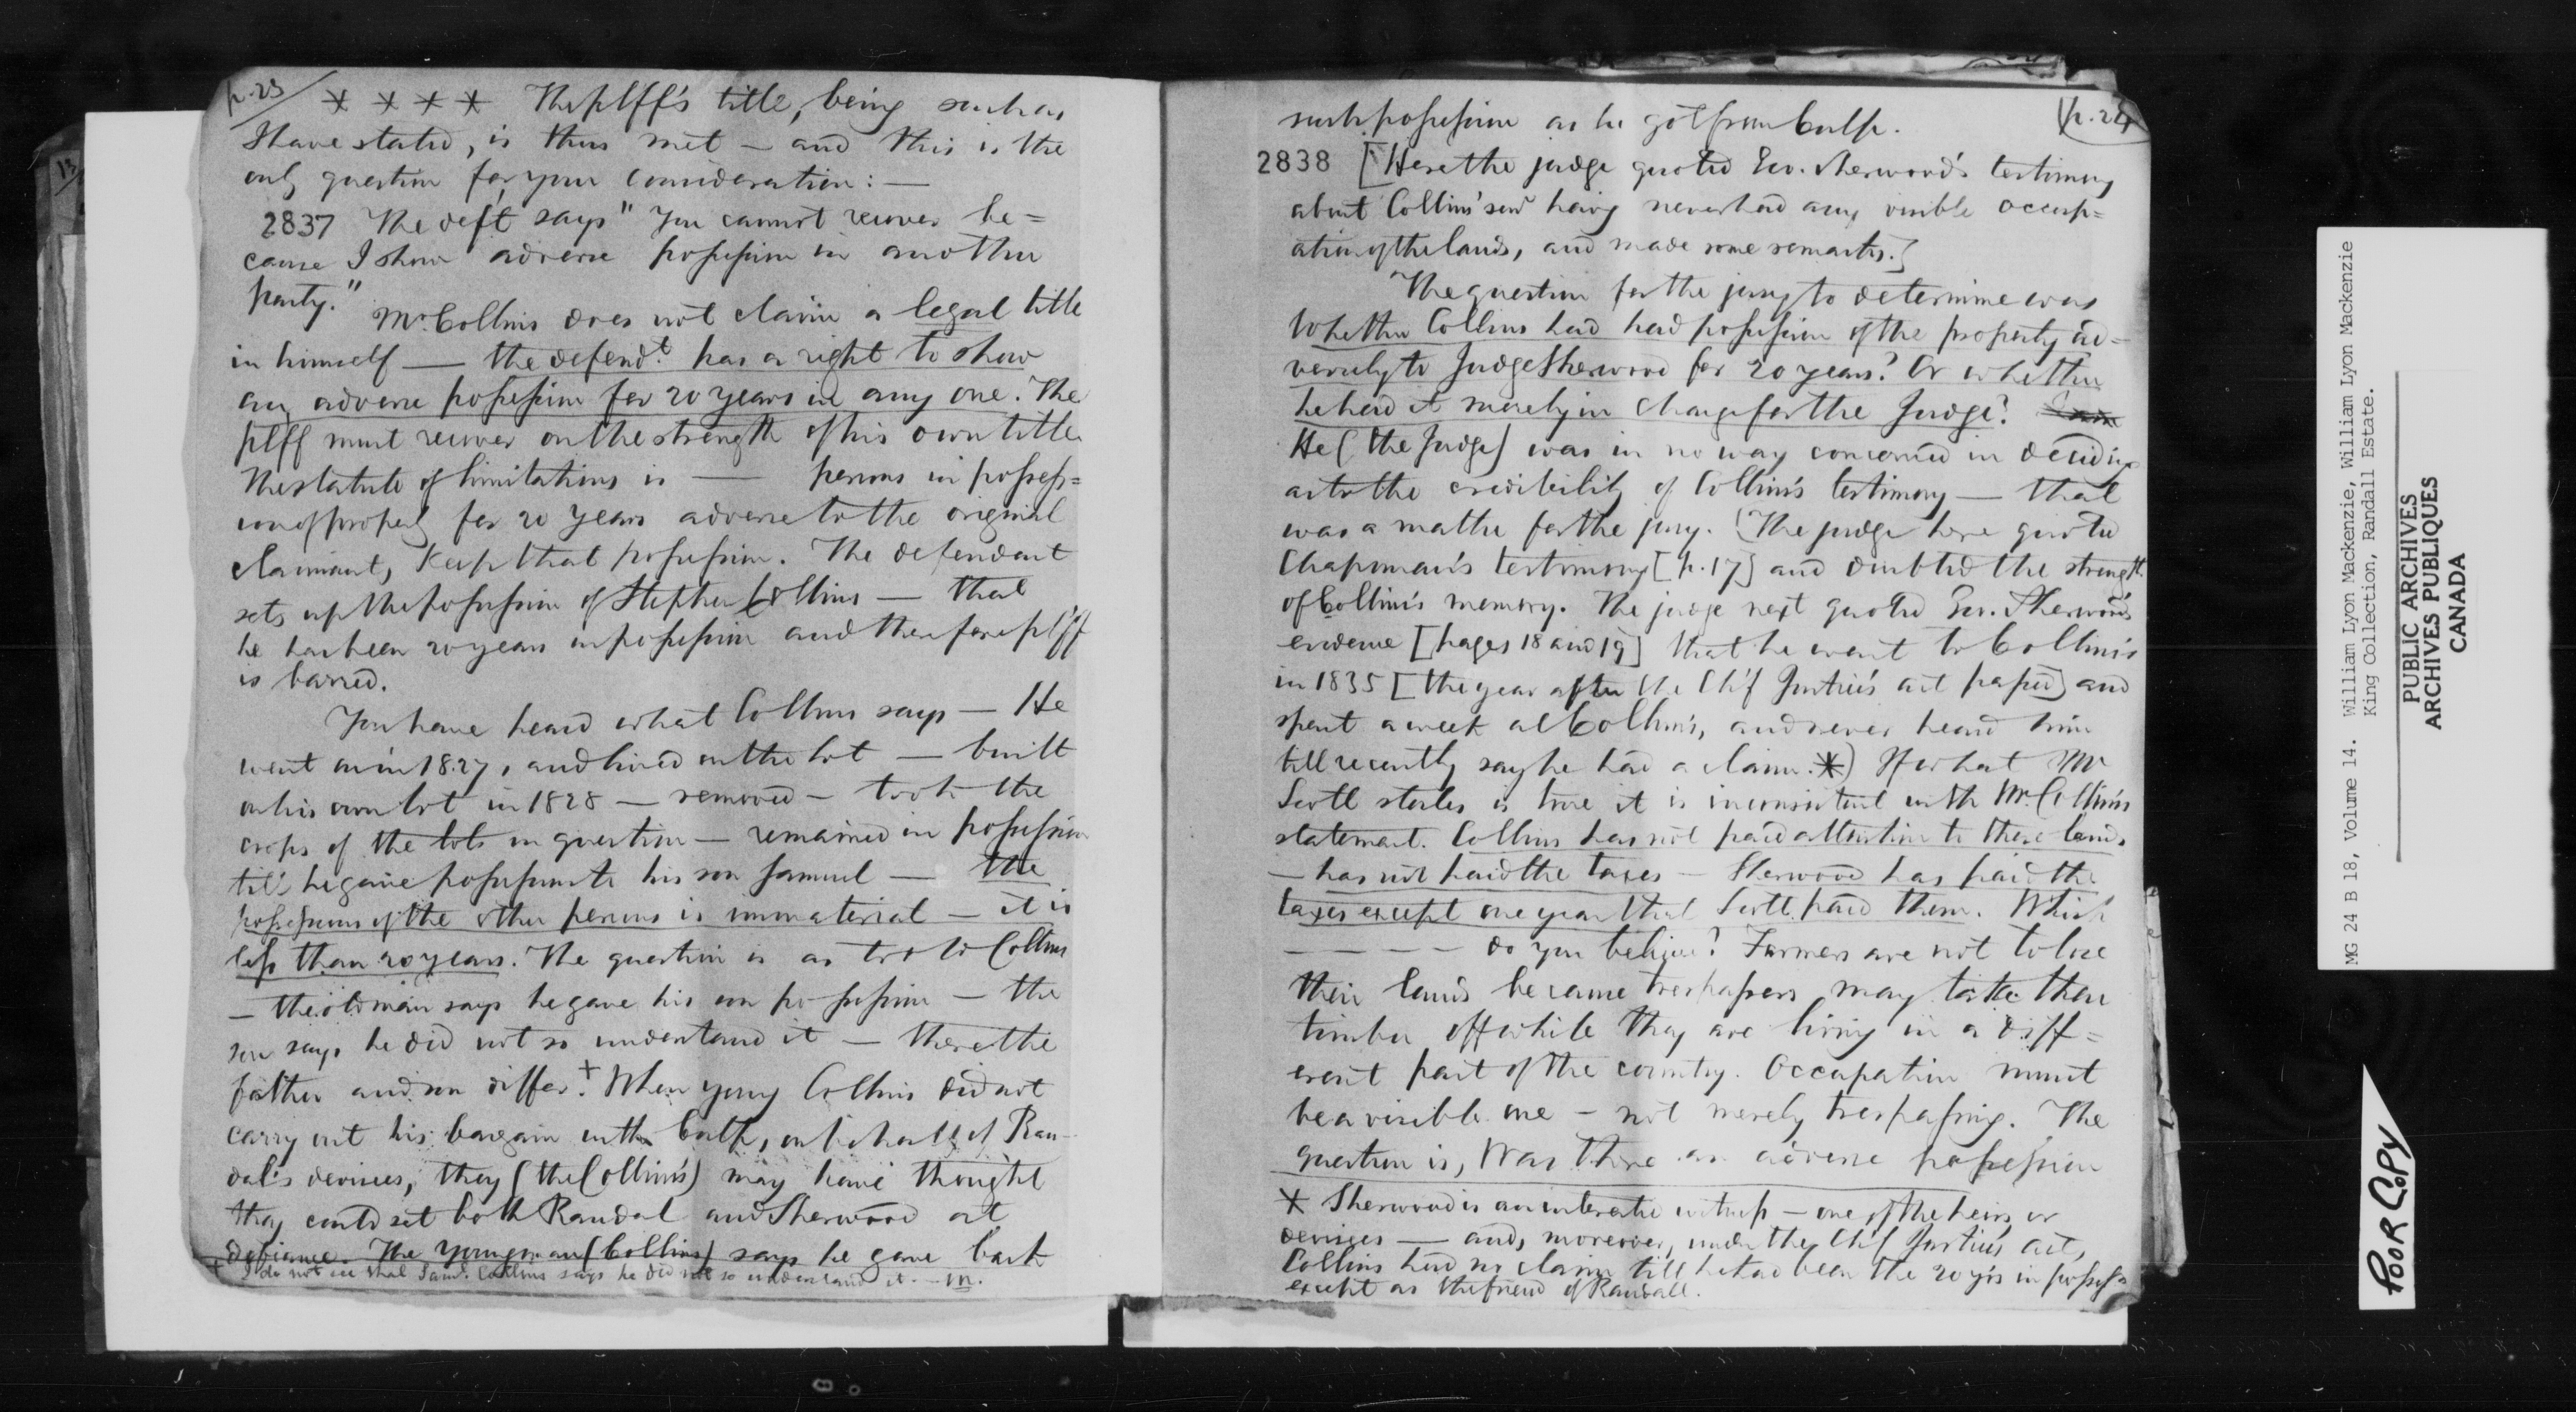 p. 23
* * * * The plff's title, being such as
I have stated, is thus met — and this is the
only question for your consideration: —
2837 The deft says "You cannot recover be=
cause I show adverse possession in another
party."
Mr. Collins does not claim a legal title
in himself — the defendt. has a right to show
any adverse possession for 20 years in any one. The
plff must recover on the strength of his own title.
The statute of limitations is — persons in possess=
ion of property for 20 years adverse to the original
claimant, keep that possession. The defendant
sets up the possession of Stephen Collins — that
he has been 20 years in possession and therefore plff
is barred.
You have heard what Collins says — He
went on in 1827, and lived on the lot — built
on his own lot in 1828 — removed — took the
crops of the lots in question — remained in possession
till he gave possession to his son Samuel — the
possession of the other persons is immaterial — it is
less than 20 years. The question is as to Collins
— the old man says he gave his son possession — the
son says he did not so understand it — there the
father and son differ.+ When young Collins did not
carry out his bargain with Culp, on behalf of Ran-
dal's devisees, they (the Collins's) may have thought
they could set both Randal and Sherwood at
defiance. The young man (Collins) says he gave back
+ I do not see that Saml. Collins says he did not so understand it. — M.
p. 24
such possession as he got from Culp.
2838 [Here the judge quoted Ed. Sherwood's testimony
about Collins' son having never had any visible occup=
ation of the lands, and made some remarks.]
The question for the jury to determine was
Whether Collins had had possession of the property ad=
versely to Judge Sherwood for 20 years? Or whether
he had it merely in charge for the Judge?
He (the Judge) was in no way concerned in deciding
as to the credibility of Collins's testimony — that
was a matter for the jury. (The judge here quoted
Chapman's testimony [p. 17] and doubted the strength
of Collins's memory. The judge next quoted Ed. Sherwood's
evidence [pages 18 and 19] that he went to Collins's
in 1835 [the year after the Ch'f Justice's act passed] and
spent a week at Collins's, and never heard him
till recently say he had a claim.*) If what Mr
Scott states is true it is inconsistent with Mr. Collins's
statement. Collins has not paid attention to these lands
— has not paid the taxes — Sherwood has paid the
taxes except one year that Scott paid them. Which
— — — — do you believe? Farmers are not to lose
their lands because trespassers may take their
timber off while they are living in a diff=
erent part of the country. Occupation must
be a visible one — not merely trespassing. The
question is, Was there an adverse possession
* Sherwood is an interested witness — one of the heirs or
devisees — and, moreover, under the Ch'f Justice's act,
Collins had no claim till he had been the 20 y'rs in possess'n
except as the friend of Randall.
MG 24 B 18, Volume 14. William Lyon Mackenzie, William Lyon Mackenzie
King Collection, Randall Estate.
PUBLIC ARCHIVES
ARCHIVES PUBLIQUES
CANADA
POOR COPY